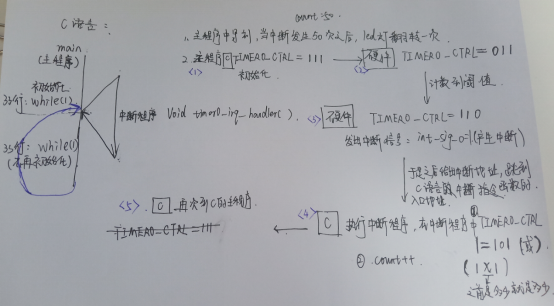 C语言：
count: 50.
main
(主程序)
1. 主程序中序到，当中断发生50次之后，led灯翻转一次
2. 主程序 C TIMER0_CTRL = 111 → <2> 硬件 TIMER0_CTRL = 011
<1> 初始化
计数到阈值
初始化
35行: while(1)
中断程序 void timer0_irq_handler().
<3> 硬件 TIMER0_CTRL = 110
发出中断信号: int_sig_o=1(产生中断)
35行: while(1)
(不再初始化)
于是之后给出中断地址, 跳到
C语言的中断 函数的
入口地址.
<5>. C 再次到C的主程序.
TIMER0_CTRL = 111
<4> C 执行中断程序, 在中断程序中 ① TIMER0_CTRL
|= 101 (或)
② count++
(1 X 1)
之前是多少就是多少